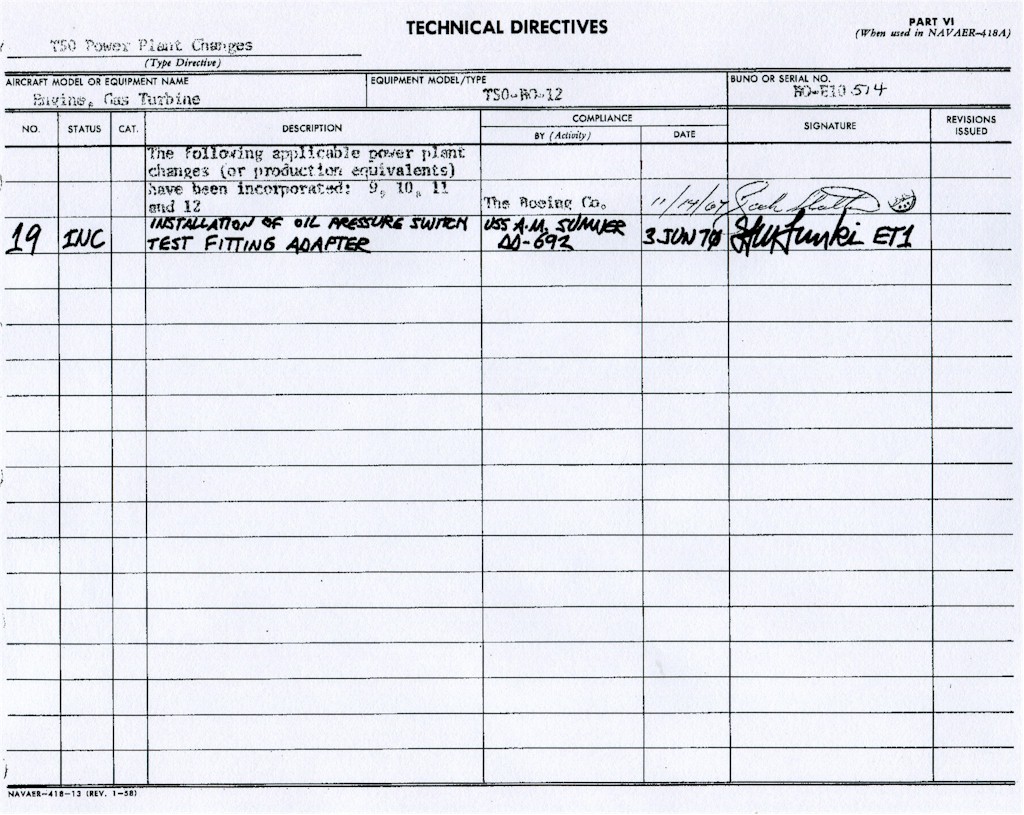 TECHNICAL DIRECTIVES
PART VI
(When used in NAVAER–418A)
T50 Power Plant Changes
(Type Directive)
AIRCRAFT MODEL OR EQUIPMENT NAME
Engine, Gas Turbine
EQUIPMENT MODEL/TYPE
T50-BO-12
BUNO OR SERIAL NO.
BO-E10 574
NO.
STATUS
CAT.
DESCRIPTION
COMPLIANCE
BY (Activity)
DATE
SIGNATURE
REVISIONS
ISSUED
The following applicable power plant
changes (or production equivalents)
have been incorporated: 9, 10, 11
and 12
The Boeing Co.
11/14/67
19 INC
INSTALLATION OF OIL PRESSURE SWITCH
TEST FITTING ADAPTER
USS A.M. SUMNER
DD-692
3 JUN 70
ET1
NAVAER–418–13 (REV. 1–58)